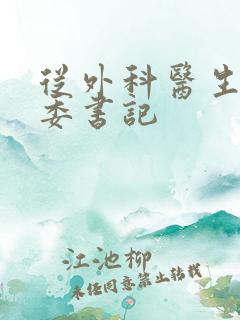 從外科醫生
委書記
江池柳
未經同意禁止轉載